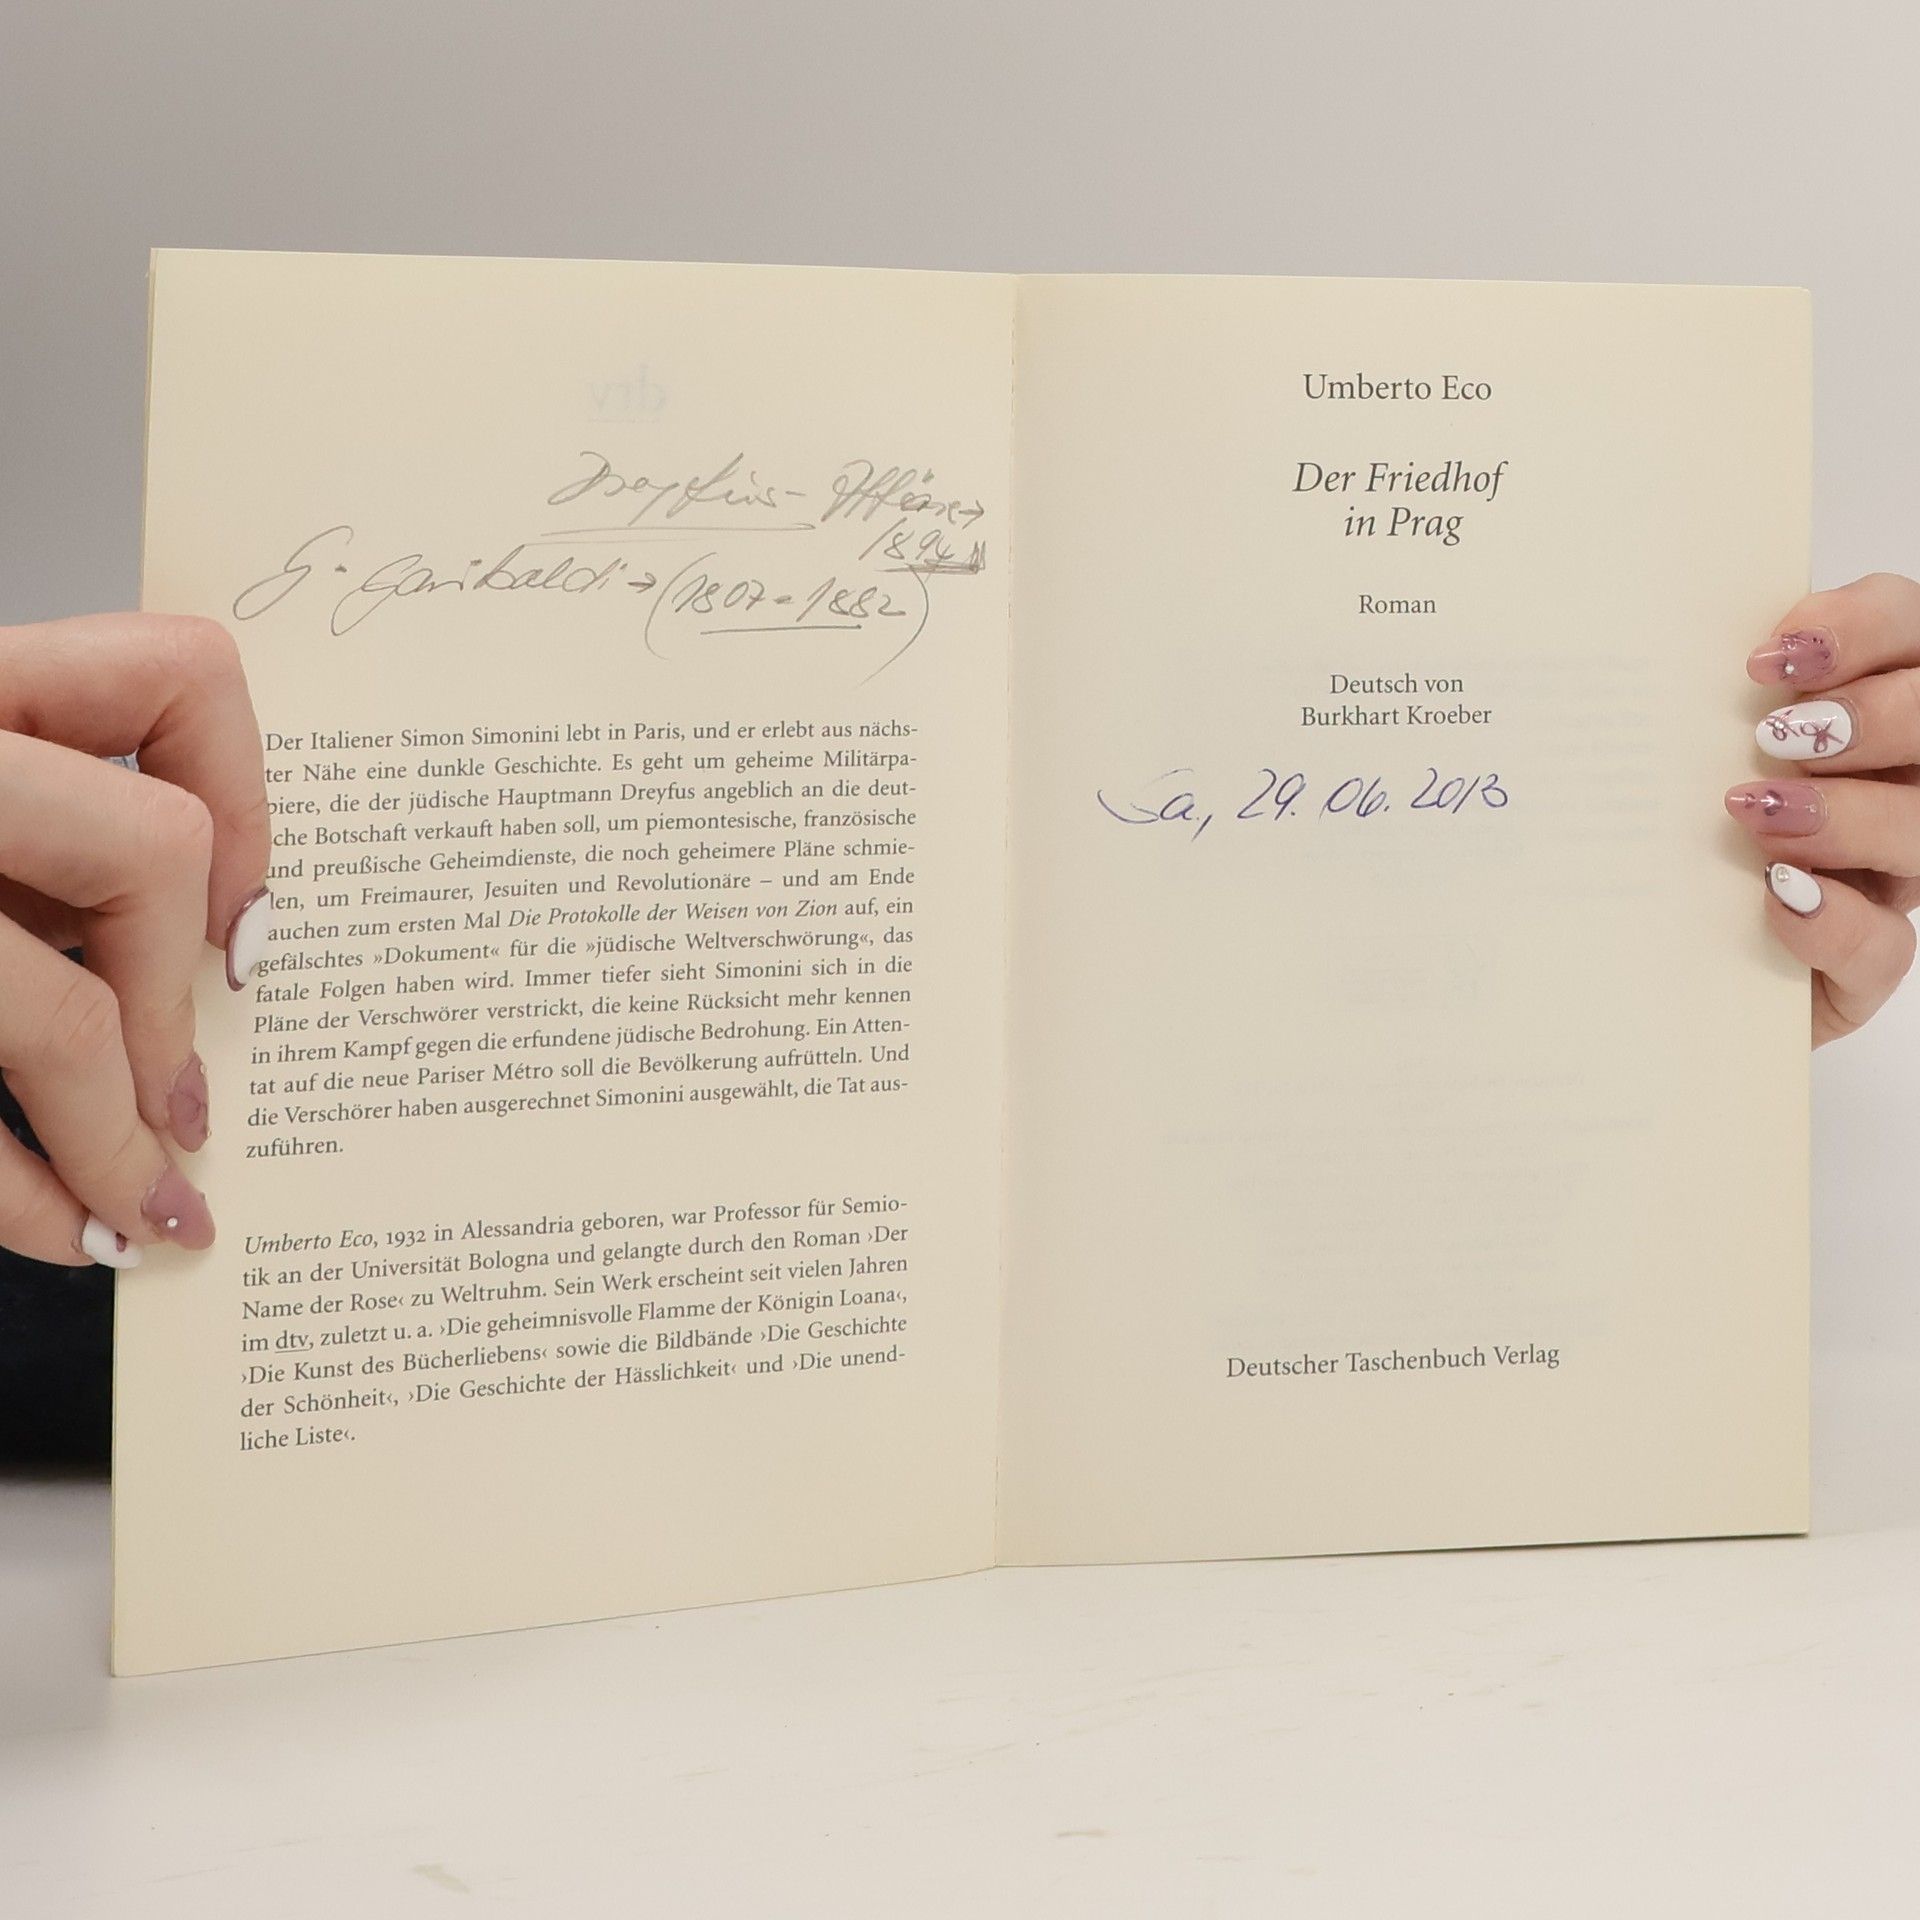 Dreyfus-Affäre→
1894
G. Garibaldi→(1807-1882)
Der Italiener Simon Simonini lebt in Paris, und er erlebt aus nächs-
ter Nähe eine dunkle Geschichte. Es geht um geheime Militärpa-
piere, die der jüdische Hauptmann Dreyfus angeblich an die deut-
sche Botschaft verkauft haben soll, um piemontesische, französische
und preußische Geheimdienste, die noch geheimere Pläne schmie-
den, um Freimaurer, Jesuiten und Revolutionäre – und am Ende
tauchen zum ersten Mal Die Protokolle der Weisen von Zion auf, ein
gefälschtes »Dokument« für die »jüdische Weltverschwörung«, das
fatale Folgen haben wird. Immer tiefer sieht Simonini sich in die
Pläne der Verschwörer verstrickt, die keine Rücksicht mehr kennen
in ihrem Kampf gegen die erfundene jüdische Bedrohung. Ein Atten-
tat auf die neue Pariser Métro soll die Bevölkerung aufrütteln. Und
die Verschörer haben ausgerechnet Simonini ausgewählt, die Tat aus-
zuführen.
Umberto Eco, 1932 in Alessandria geboren, war Professor für Semio-
tik an der Universität Bologna und gelangte durch den Roman ›Der
Name der Rose‹ zu Weltruhm. Sein Werk erscheint seit vielen Jahren
im dtv, zuletzt u. a. ›Die geheimnisvolle Flamme der Königin Loana‹,
›Die Kunst des Bücherliebens‹ sowie die Bildbände ›Die Geschichte
der Schönheit‹, ›Die Geschichte der Hässlichkeit‹ und ›Die unend-
liche Liste‹.
Umberto Eco
Der Friedhof
in Prag
Roman
Deutsch von
Burkhart Kroeber
Sa., 29. 06. 2013
Deutscher Taschenbuch Verlag